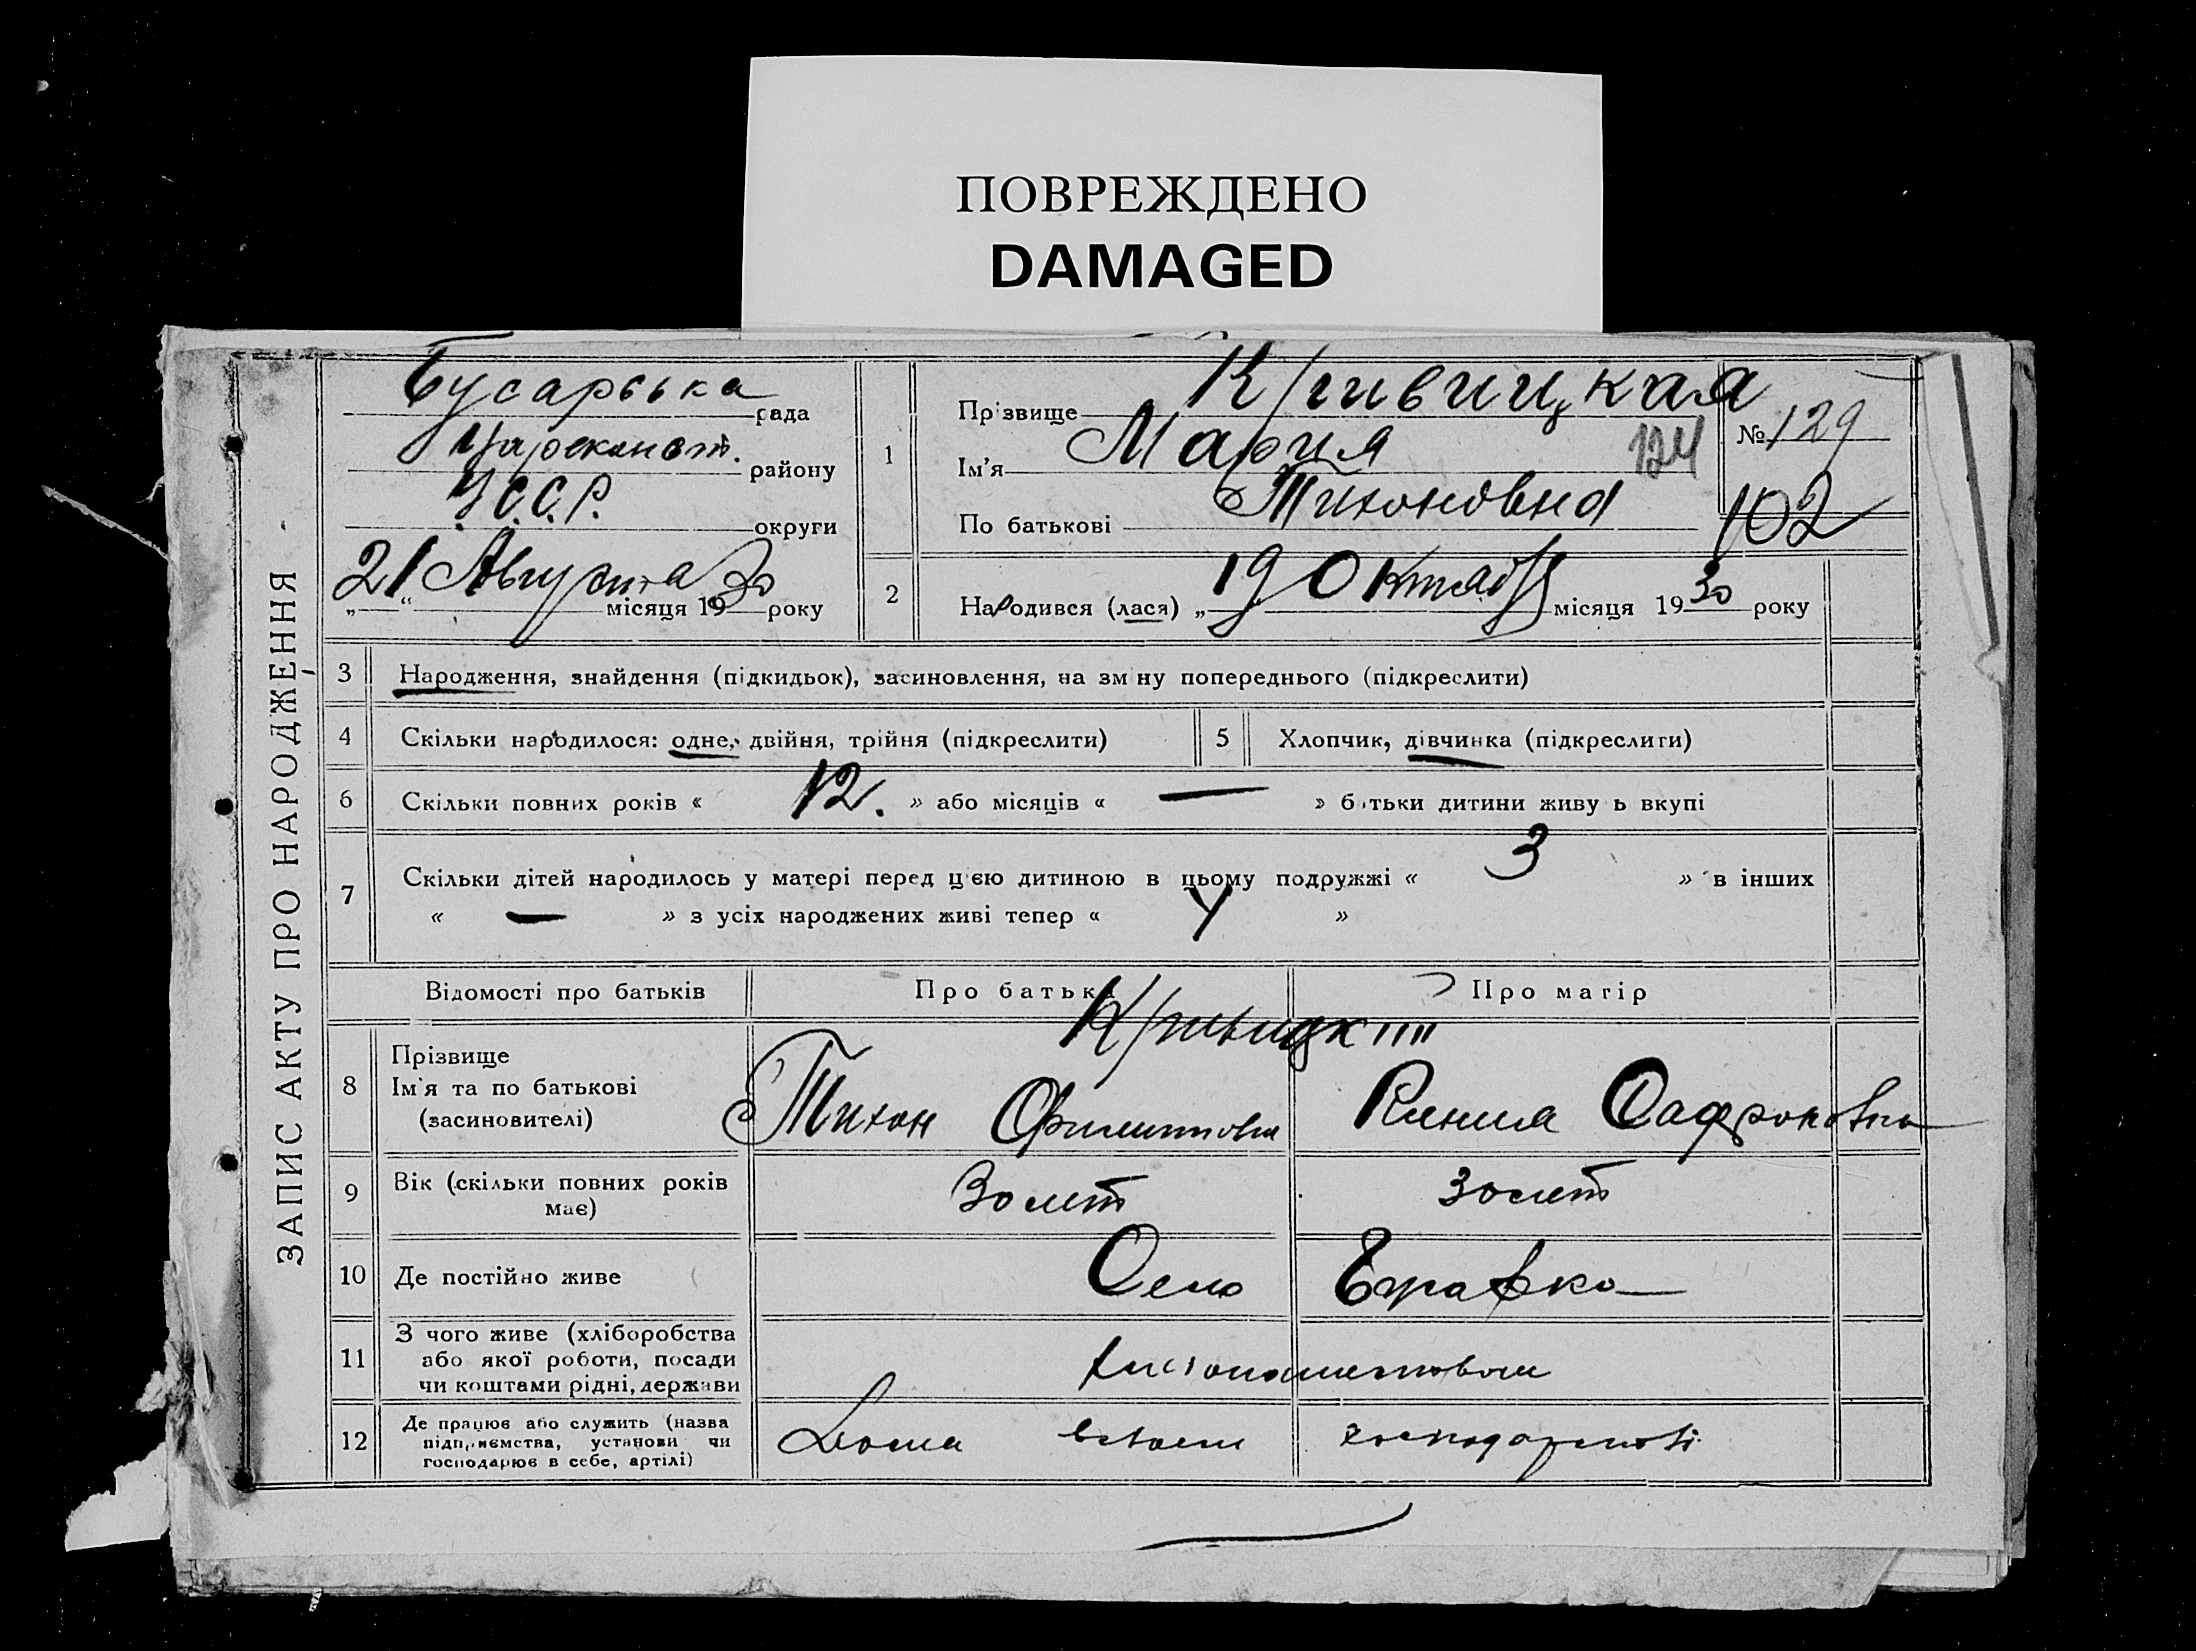 ПОВРЕЖДЕНО
DAMAGED
ЗАПИС АКТУ ПРО НАРОДЖЕННЯ
рада
району
У.С.С.Р. округи
21 Августа місяця 1930 року
1
Прізвище Кривицкая
Ім'я Мария
По батькові Тихоновна
124
№ 129
102
2
Народився (лася) „19 Октябр місяця 1930 року
3 Народження, знайдення (підкидьок), засиновлення, на зміну попереднього (підкреслити)
4 Скільки народилося: одне, двійня, трійня (підкреслити)
5 Хлопчик, дівчинка (підкреслити)
6 Скільки повних років « 12. » або місяців « — » батьки дитини живуть вкупі
7 Скільки дітей народилось у матері перед цією дитиною в цьому подружжі « 3 » в інших
« — » з усіх народжених живі тепер « 4 »
Відомості про батьків Про батька Про матір
8 Прізвище
Ім'я та по батькові
(засиновителі)
Кривицкии
Тихон Сафроновна
9 Вік (скільки повних років
має)
30 лет 30 лет
10 Де постійно живе Село
11 З чого живе (хліборобства
або якої роботи, посади
чи коштами рідні, держави
12 Де працює або служить (назва
підприємства, установи чи
господарює в себе, артілі)
Дома